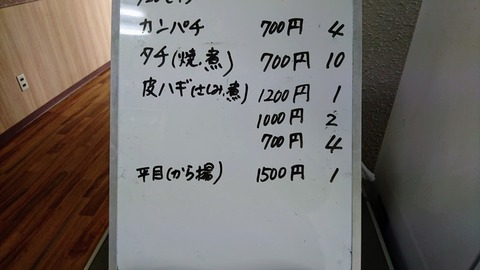 カンパチ 700円 4
タチ(焼.煮) 700円 10
皮ハギ(さしみ.煮) 1200円 1
1000円 2
700円 4
平目(から揚) 1500円 1